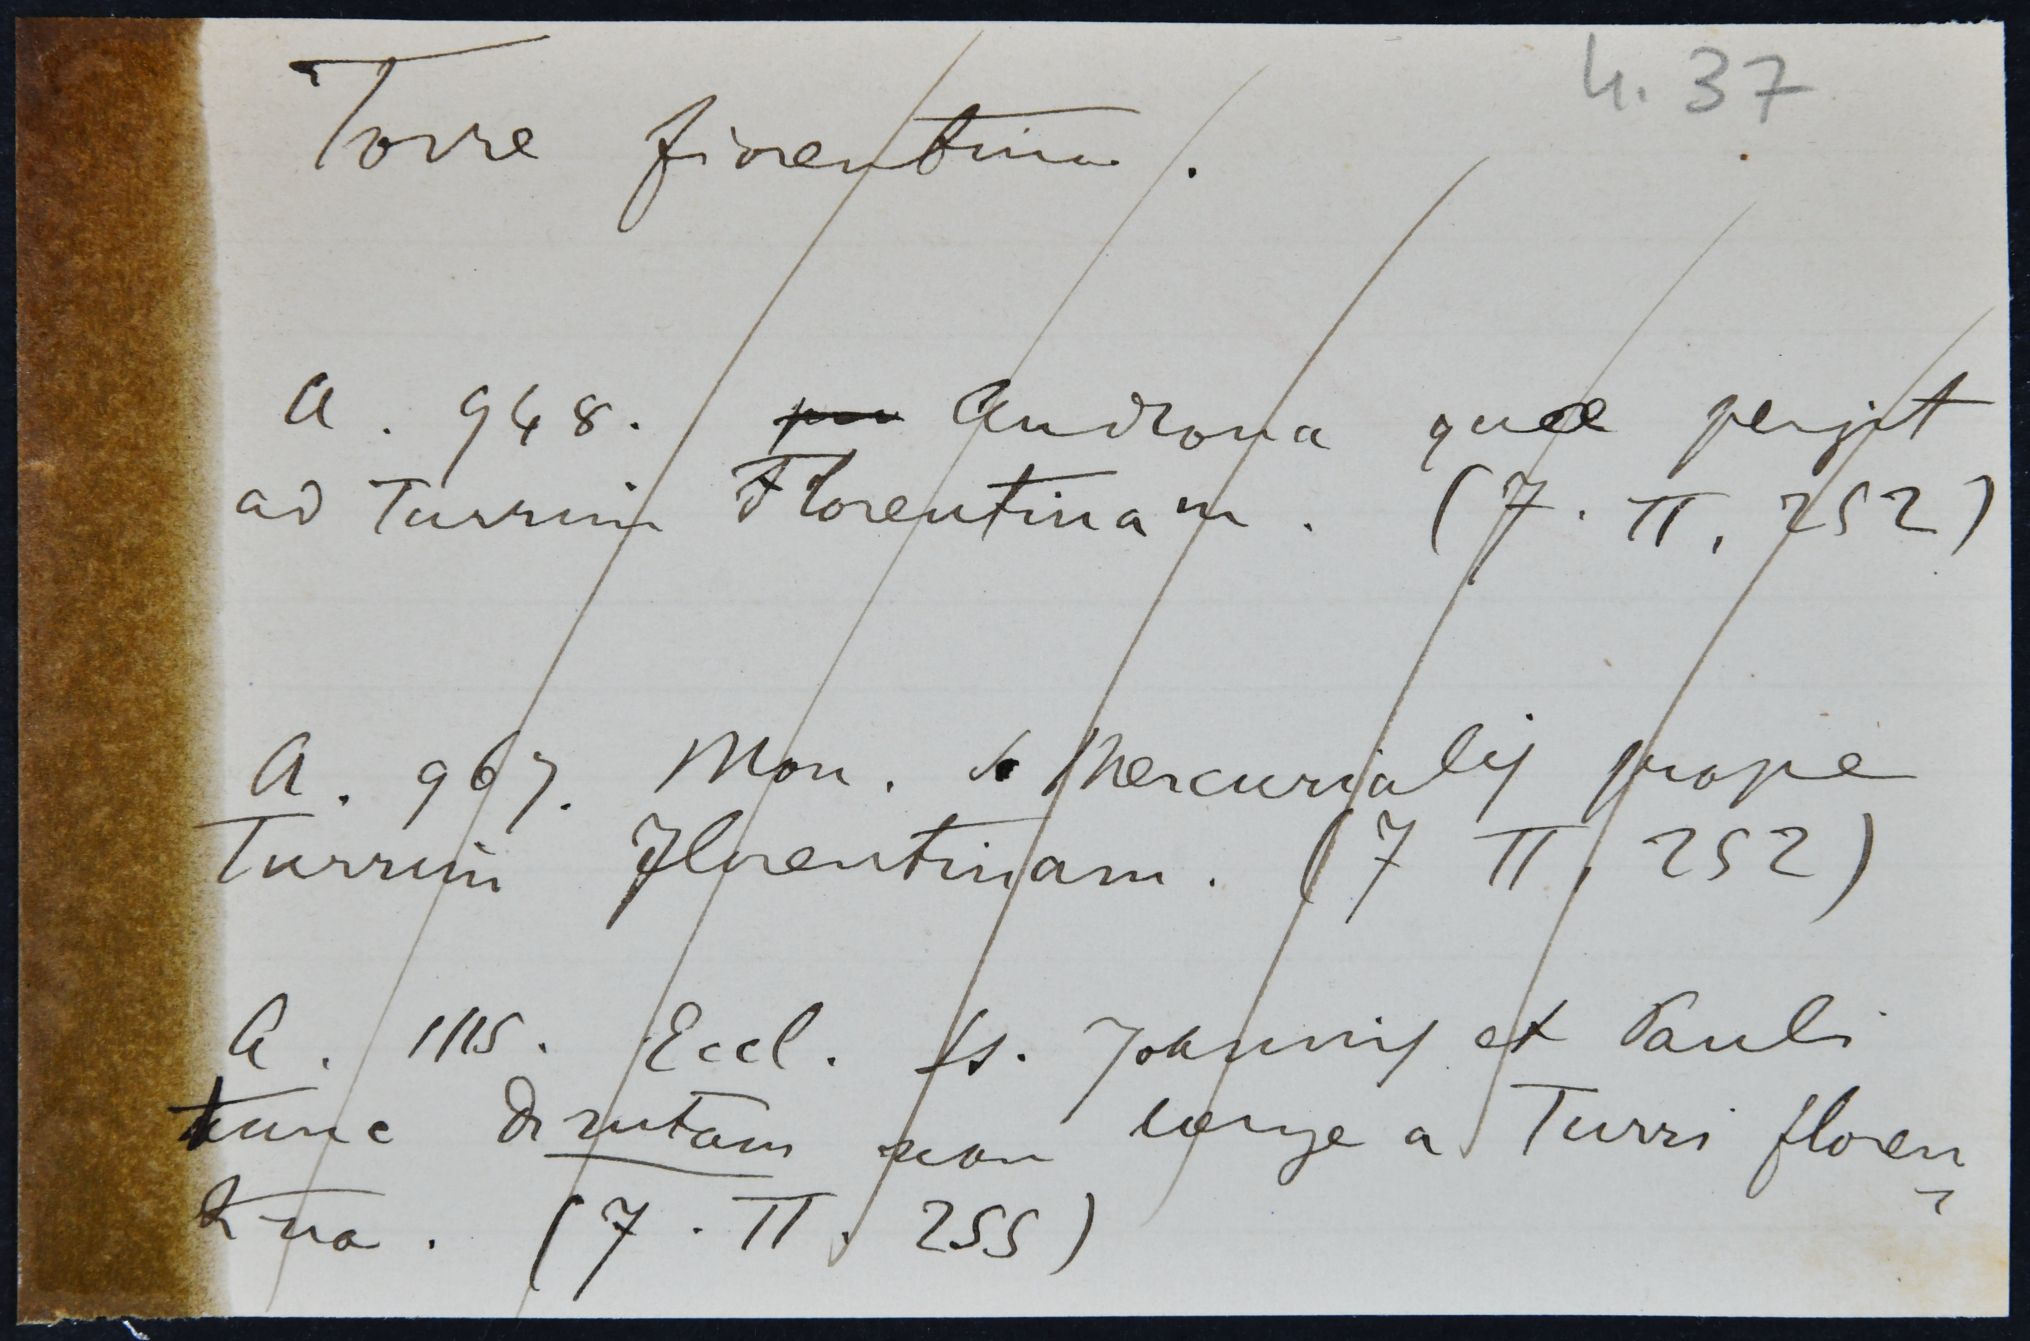 h. 37
Torre fiorentina.
A. 948. Androna quae pergit
ad Turrim Florentinam. (7. II, 252)
A. 967. Mon. s Mercurialis prope
Turrim Florentinam. (7 II, 252)
A. 1115. Eccl. ss. Johannis et Pauli
tunc dirutam non longe a Turri floren
tina. (7. II. 255)